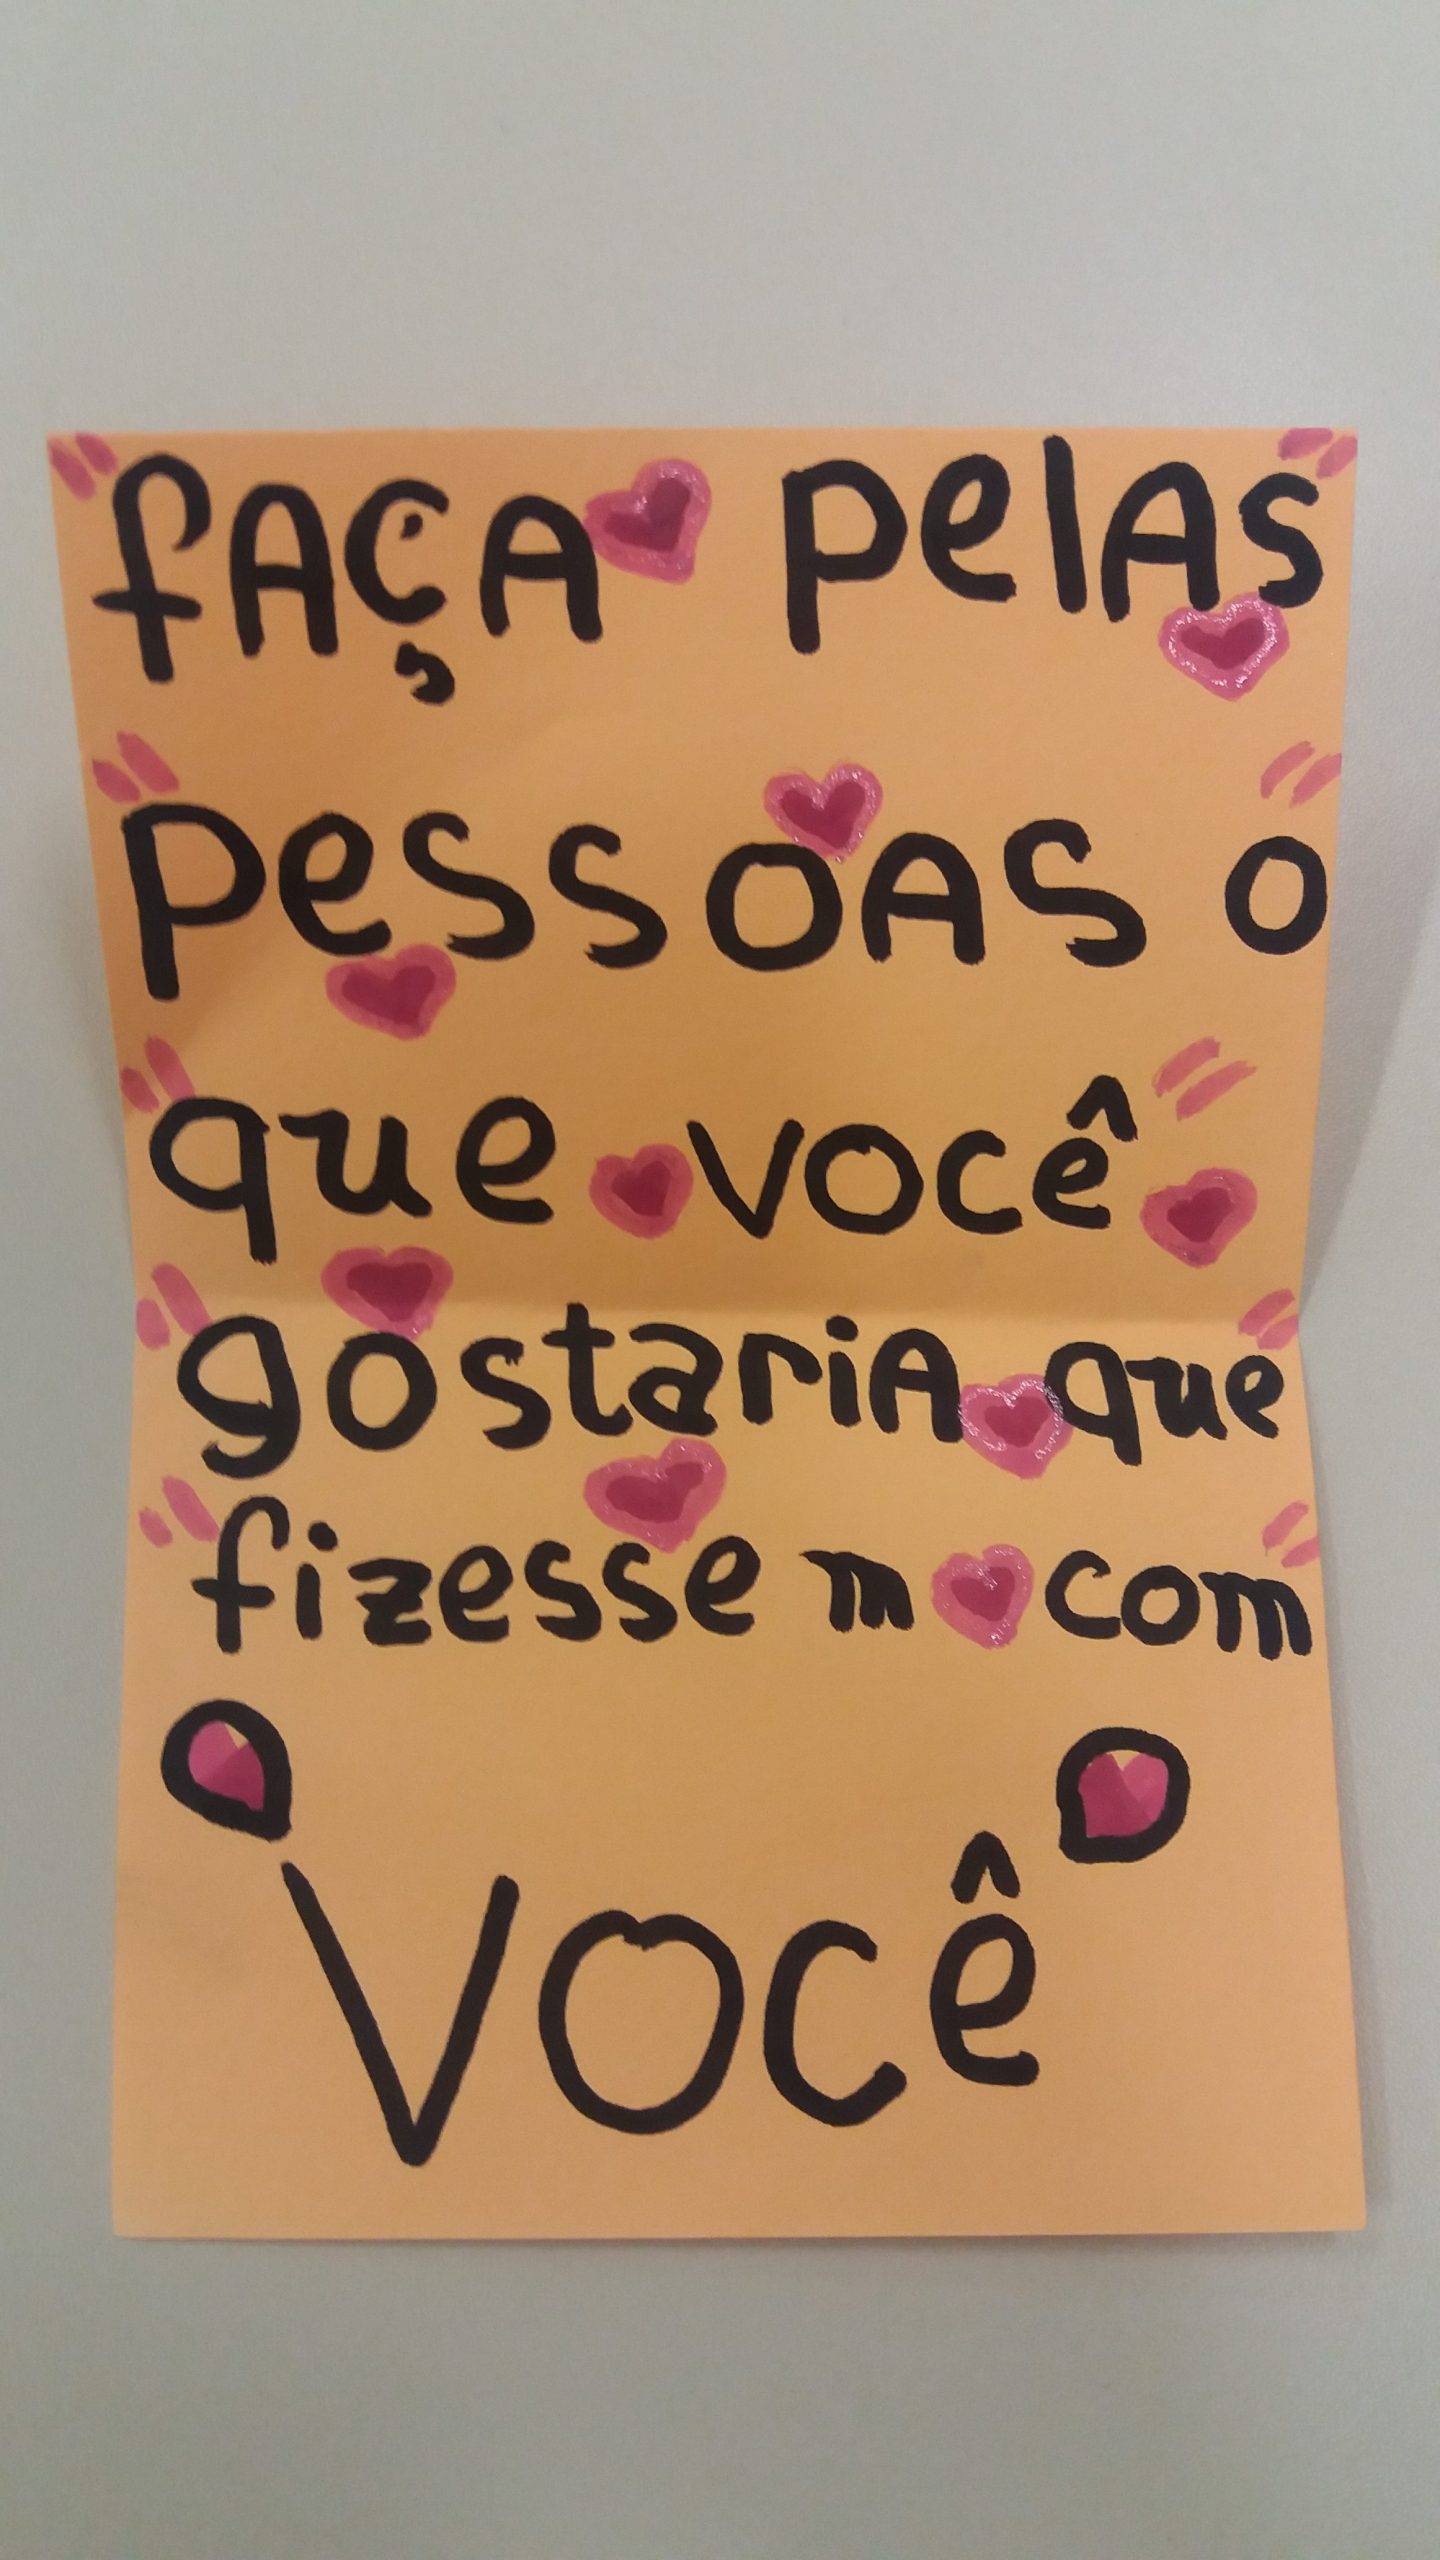 fAÇA pelAs
pessoAs o
que você
gostariA que
fizessem com
Você